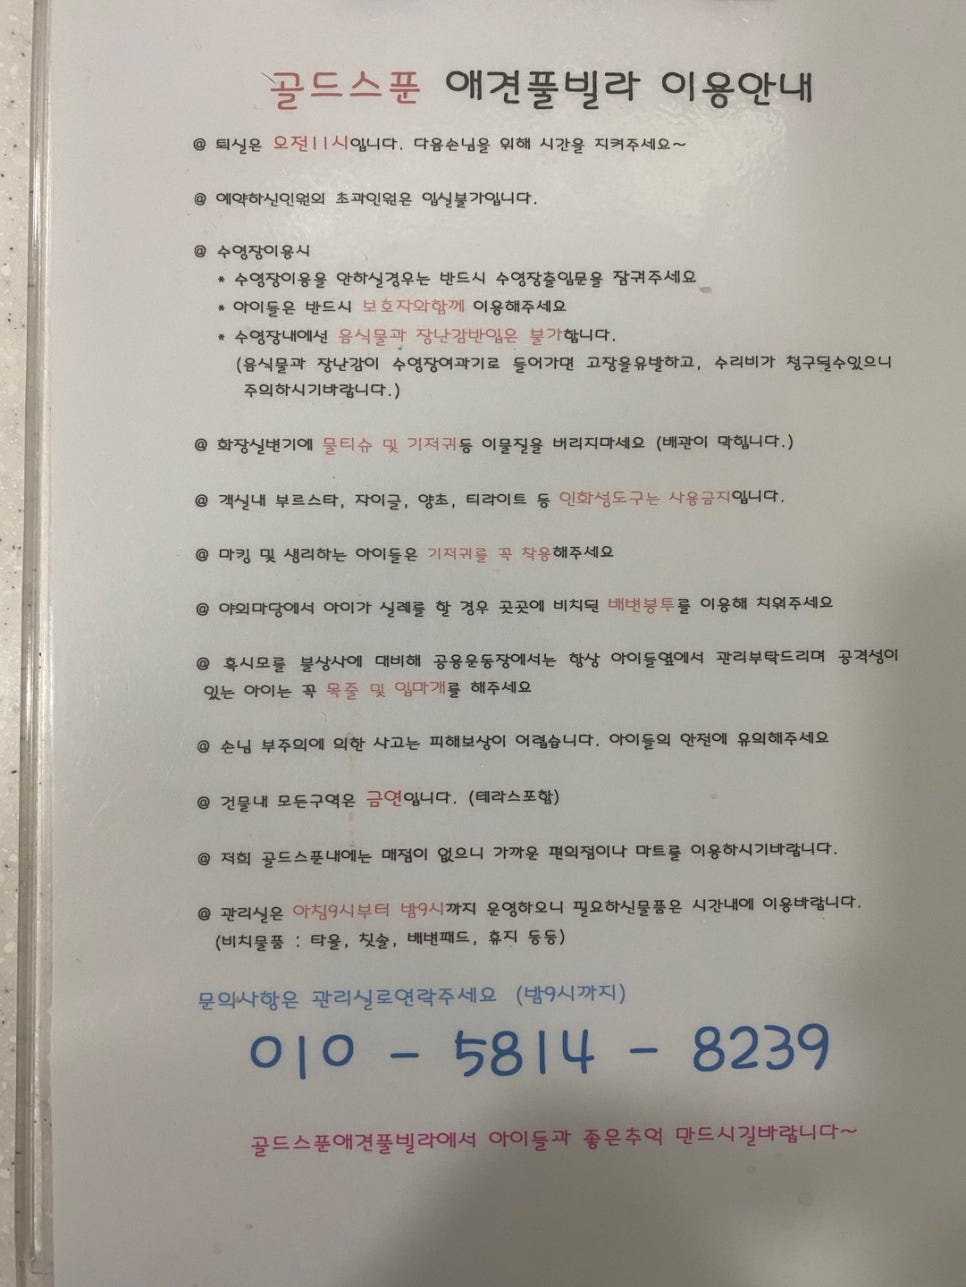 골드스푼 애견풀빌라 이용안내
@ 퇴실은 오전11시입니다. 다음손님을 위해 시간을 지켜주세요~
@ 예약하신인원의 초과인원은 입실불가입니다.
@ 수영장이용시
* 수영장이용을 안하실경우는 반드시 수영장출입문을 잠궈주세요
* 아이들은 반드시 보호자와함께 이용해주세요
* 수영장내에선 음식물과 장난감반입은 불가합니다.
(음식물과 장난감이 수영장여과기로 들어가면 고장을유발하고, 수리비가 청구될수있으니
주의하시기바랍니다.)
@ 화장실변기에 물티슈 및 기저귀등 이물질을 버리지마세요 (배관이 막힙니다.)
@ 객실내 부르스타, 자이글, 양초, 티라이트 등 인화성도구는 사용금지입니다.
@ 마킹 및 생리하는 아이들은 기저귀를 꼭 착용해주세요
@ 야외마당에서 아이가 실례를 할 경우 곳곳에 비치된 배변봉투를 이용해 치워주세요
@ 혹시모를 불상사에 대비해 공용운동장에서는 항상 아이들옆에서 관리부탁드리며 공격성이
있는 아이는 꼭 목줄 및 입마개를 해주세요
@ 손님 부주의에 의한 사고는 피해보상이 어렵습니다. 아이들의 안전에 유의해주세요
@ 건물내 모든구역은 금연입니다. (테라스포함)
@ 저희 골드스푼내에는 매점이 없으니 가까운 편의점이나 마트를 이용하시기바랍니다.
@ 관리실은 아침9시부터 밤9시까지 운영하오니 필요하신물품은 시간내에 이용바랍니다.
(비치물품 : 타올, 칫솔, 배변패드, 휴지 등등)
문의사항은 관리실로연락주세요 (밤9시까지)
010 - 5814 - 8239
골드스푼애견풀빌라에서 아이들과 좋은추억 만드시길바랍니다~